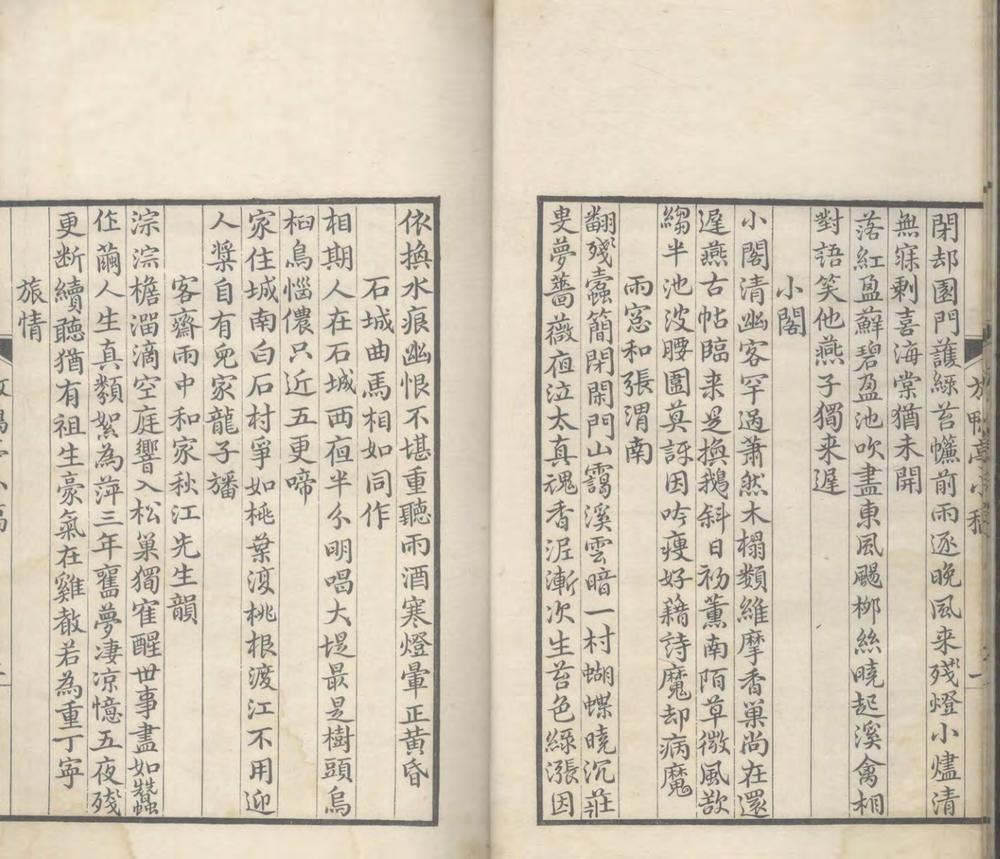 放鴨亭小稿
一
閉却園門護綠苔㡘前雨逐晚风来殘燈小燼清
無寐剩喜海棠猶未開
落紅盈蘚碧盈池吹盡東风颺栁絲曉起溪禽相
對語笑他燕子獨来遲
小閣
小閣清幽客罕過蕭然木榻類維摩香巢尚在還
遲燕古帖臨来是換鵝斜日初薰南陌草微風歘
縐半池波腰圍莫訝因吟瘦好藉詩魔却病魔
雨窓和張渭南
翻殘蠹簡閉閑門山靄溪雲暗一村蝴蝶曉沉莊
叟夢薔薇夜泣太真魂香泥漸次生苔色綠漲因
依換水痕幽恨不堪重聽雨酒寒燈暈正黃昏
石城曲馬相如同作
相期人在石城西夜半分明唱大堤最是樹頭烏
桕鳥惱儂只近五更啼
家住城南白石村爭如桃葉復桃根渡江不用迎
人槳自有兔家龍子旛
客齋雨中和家秋江先生韻
淙淙檐溜滴空庭響入松巢獨寉醒世事盡如蠶
作繭人生真類絮為萍三年舊夢凄凉憶五夜殘
更断續聽猶有祖生豪氣在雞聲若為重丁寧
旅情